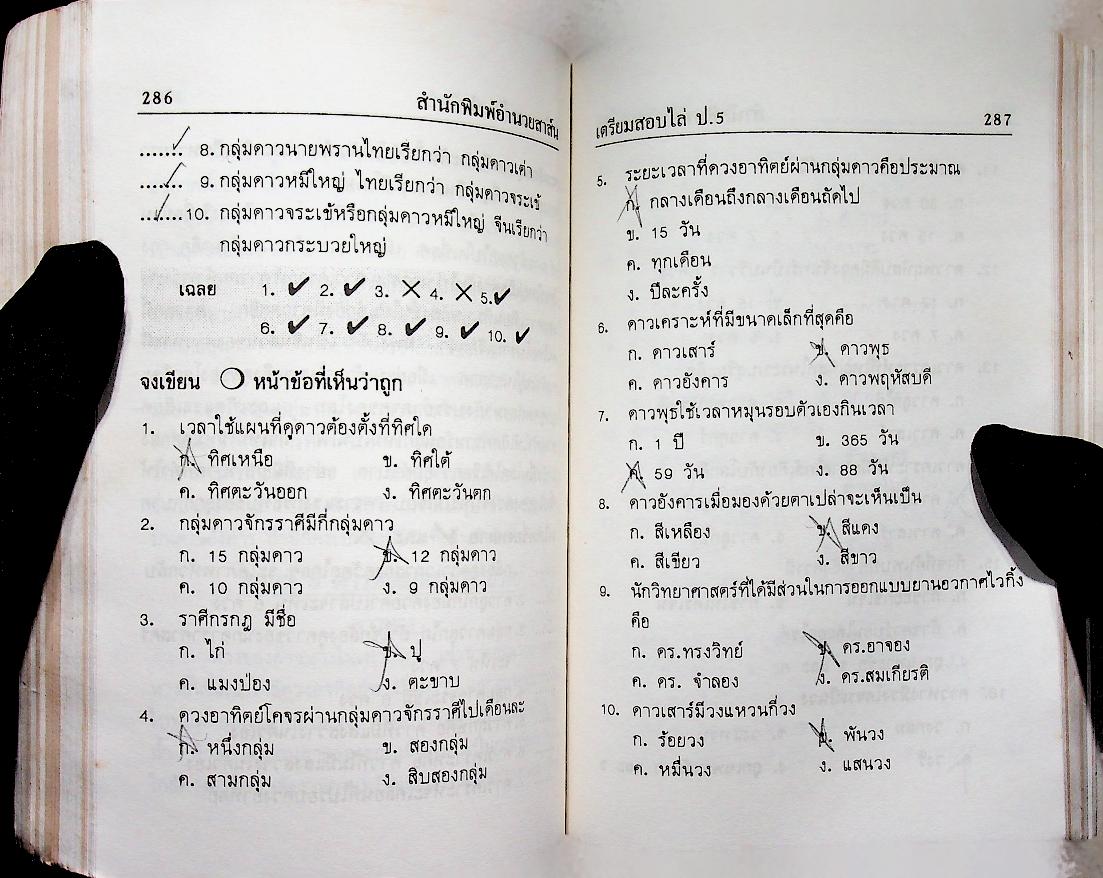 286 สำนักพิมพ์อำนวยสาส์น
....... 8. กลุ่มดาวนายพรานไทยเรียกว่า กลุ่มดาวเต่า
....... 9. กลุ่มดาวหมีใหญ่ ไทยเรียกว่า กลุ่มดาวจระเข้
.......10. กลุ่มดาวจระเข้หรือกลุ่มดาวหมีใหญ่ จีนเรียกว่า
กลุ่มดาวกระบวยใหญ่
เฉลย 1. ✔ 2. ✔ 3. ✕ 4. ✕ 5. ✔
6. ✔ 7. ✔ 8. ✔ 9. ✔ 10. ✔
จงเขียน ◯ หน้าข้อที่เห็นว่าถูก
1. เวลาใช้แผนที่ดูดาวต้องตั้งที่ทิศใด
ก. ทิศเหนือ ข. ทิศใต้
ค. ทิศตะวันออก ง. ทิศตะวันตก
2. กลุ่มดาวจักรราศีมีกี่กลุ่มดาว
ก. 15 กลุ่มดาว ข. 12 กลุ่มดาว
ค. 10 กลุ่มดาว ง. 9 กลุ่มดาว
3. ราศีกรกฎ มีชื่อ
ก. ไก่ ข. ปู
ค. แมงป่อง ง. ตะขาบ
4. ดวงอาทิตย์โคจรผ่านกลุ่มดาวจักรราศีไปเดือนละ
ก. หนึ่งกลุ่ม ข. สองกลุ่ม
ค. สามกลุ่ม ง. สิบสองกลุ่ม
เตรียมสอบไล่ ป.5 287
5. ระยะเวลาที่ดวงอาทิตย์ผ่านกลุ่มดาวคือประมาณ
ก. กลางเดือนถึงกลางเดือนถัดไป
ข. 15 วัน
ค. ทุกเดือน
ง. ปีละครั้ง
6. ดาวเคราะห์ที่มีขนาดเล็กที่สุดคือ
ก. ดาวเสาร์ ข. ดาวพุธ
ค. ดาวอังคาร ง. ดาวพฤหัสบดี
7. ดาวพุธใช้เวลาหมุนรอบตัวเองกินเวลา
ก. 1 ปี ข. 365 วัน
ค. 59 วัน ง. 88 วัน
8. ดาวอังคารเมื่อมองด้วยตาเปล่าจะเห็นเป็น
ก. สีเหลือง ข. สีแดง
ค. สีเขียว ง. สีขาว
9. นักวิทยาศาสตร์ที่ได้มีส่วนในการออกแบบยานอวกาศไวกิ้ง
คือ
ก. ดร.ทรงวิทย์ ข. ดร.อาจอง
ค. ดร. จำลอง ง. ดร.สมเกียรติ
10. ดาวเสาร์มีวงแหวนกี่วง
ก. ร้อยวง ข. พันวง
ค. หมื่นวง ง. แสนวง